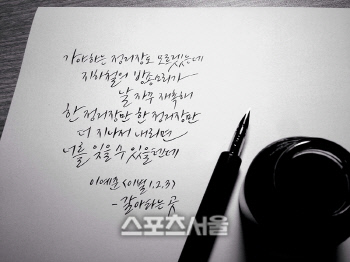 가야하는 정리장도 모르겠는데
지하철의 방송소리가
날 자꾸 재촉해
한 정리장만 한 정리장만
더 지나서 내리면
너를 잊을 수 있을텐데
이예준 <이별 1.2.3>
- 갈아타는 곳
스포츠서울